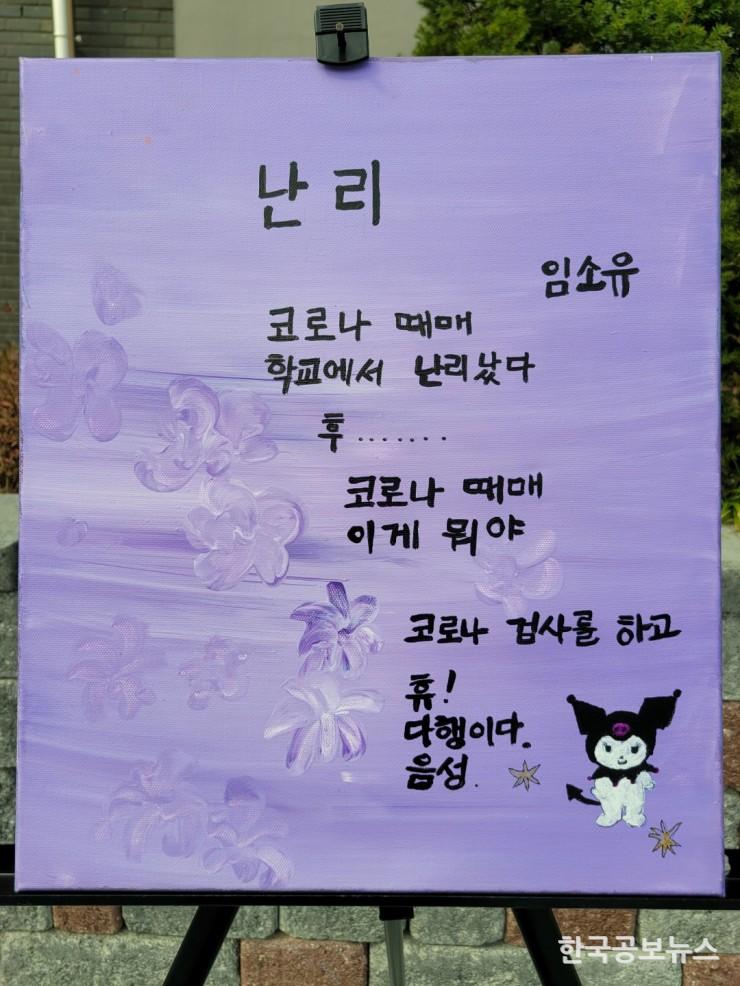 난리
임소유
코로나 때매
학교에서 난리났다
후.......
코로나 때매
이게 뭐야
코로나 검사를 하고
휴!
다행이다.
음성.
한국공보뉴스